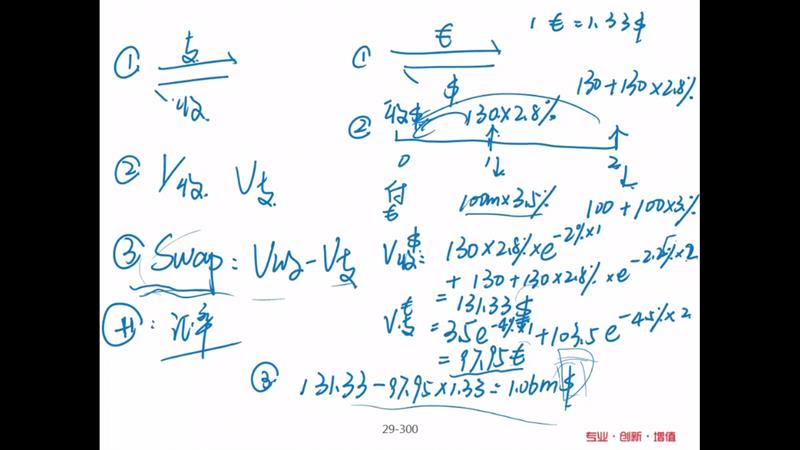 ① 支
收
② V收 V支
③ Swap: V收-V支
廾: 汇率
1€=1.33$
① €
$
收$ 130×2.8% 130+130×2.8%
②
0 1 2
付€ 100m×3.5% 100+100×3.%
V收$: 130×2.8%×e^-2%×1
+ 130+130×2.8%×e^-2.25%×2
= 131.33$
V支€ = 3.5e^-4%×1+103.5e^-4.5%×2
= 97.95€
③ 131.33-97.95×1.33=1.06m$
29-300
专业·创新·增值